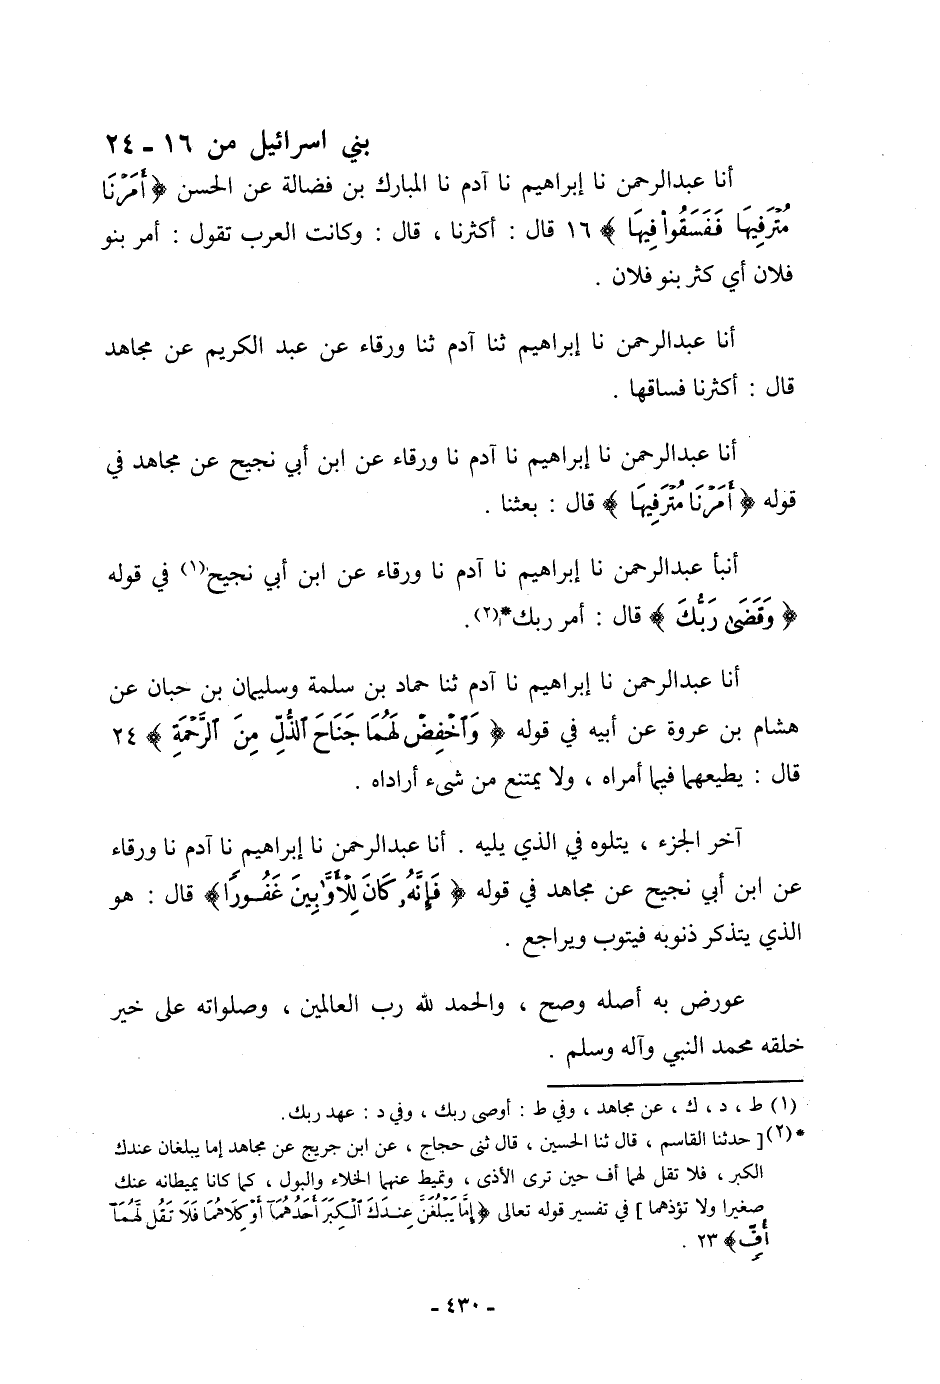 بني اسرائيل من ١٦ - ٢٤
أنا عبدالرحمن نا إبراهيم نا آدم نا المبارك بن فضالة عن الحسن ﴿ أَمَرْنَا
مُتْرَفِيهَا فَفَسَقُواْ فِيهَا ﴾ ١٦ قال : أكثرنا ، قال : وكانت العرب تقول : أمر بنو
فلان أي كثر بنو فلان .
أنا عبدالرحمن نا إبراهيم ثنا آدم ثنا ورقاء عن عبد الكريم عن مجاهد
قال : أكثرنا فساقها .
أنا عبدالرحمن نا إبراهيم نا آدم نا ورقاء عن ابن أبي نجيح عن مجاهد في
قوله ﴿ أَمَرْنَا مُتْرَفِيهَا ﴾ قال : بعثنا .
أنبأ عبدالرحمن نا إبراهيم نا آدم نا ورقاء عن ابن أبي نجيح(١) في قوله
﴿ وَقَضَىٰ رَبُّكَ ﴾ قال : أمر ربك*(٢).
أنا عبدالرحمن نا إبراهيم نا آدم ثنا حماد بن سلمة وسليمان بن حبان عن
هشام بن عروة عن أبيه في قوله ﴿ وَٱخْفِضْ لَهُمَا جَنَاحَ ٱلذُّلِّ مِنَ ٱلرَّحْمَةِ ﴾ ٢٤
قال : يطيعهما فيما أمراه ، ولا يمتنع من شىء أراداه .
آخر الجزء ، يتلوه في الذي يليه . أنا عبدالرحمن نا إبراهيم نا آدم نا ورقاء
عن ابن أبي نجيح عن مجاهد في قوله ﴿ فَإِنَّهُۥ كَانَ لِلْأَوَّٰبِينَ غَفُورًا ﴾ قال : هو
الذي يتذكر ذنوبه فيتوب ويراجع .
عورض به أصله وصح ، والحمد لله رب العالمين ، وصلواته على خير
خلقه محمد النبي وآله وسلم .
(١) ط ، د ، ك ، عن مجاهد ، وفي ط : أوصى ربك ، وفي د : عهد ربك.
*(٢)[ حدثنا القاسم ، قال ثنا الحسين ، قال ثنى حجاج ، عن ابن جريج عن مجاهد إما يبلغان عندك
الكبر ، فلا تقل لهما أف حين ترى الأذى ، وتميط عنهما الخلاء والبول ، كما كانا يميطانه عنك
صغيرا ولا تؤذهما ] في تفسير قوله تعالى ﴿ إِمَّا يَبْلُغَنَّ عِندَكَ ٱلْكِبَرَ أَحَدُهُمَآ أَوْ كِلَاهُمَا فَلَا تَقُل لَّهُمَآ
أُفٍّ ﴾ ٢٣ .
- ٤٣٠ -